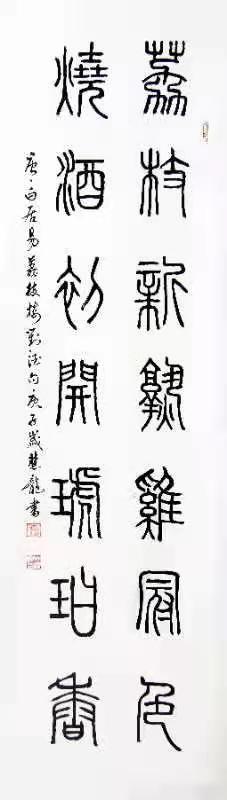 荔枝新熟雞冠色
燒酒初開琥珀香
唐·白居易荔枝樓對酒句·庚子歲慧龍書